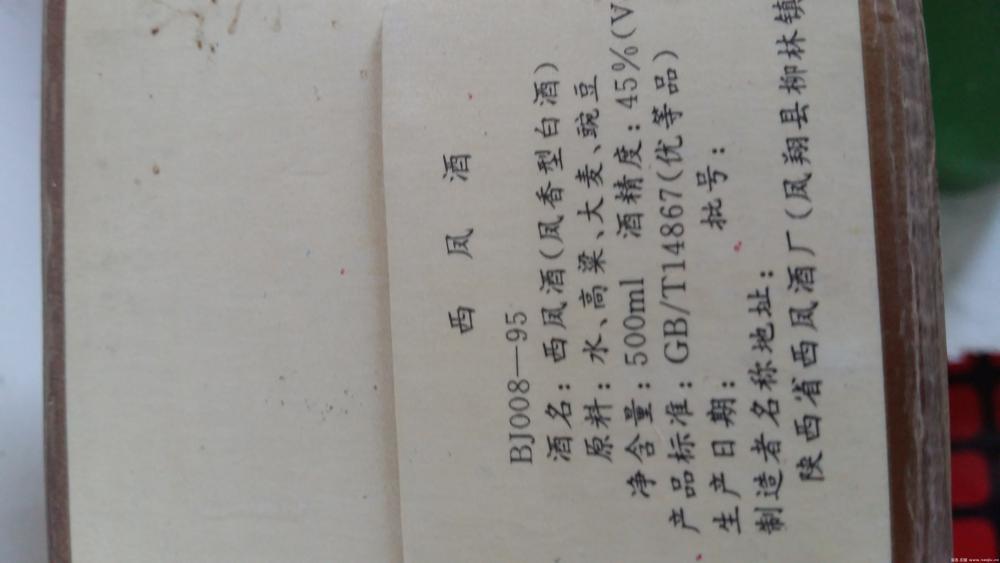 西 凤 酒
BJ008—95
酒名：西凤酒(凤香型白酒)
原料：水、高粱、大麦、豌豆
净含量：500ml 酒精度：45%(V
产品标准：GB/T14867(优等品)
生产日期： 批号：
制造者名称地址：
陕西省西凤酒厂(凤翔县柳林镇